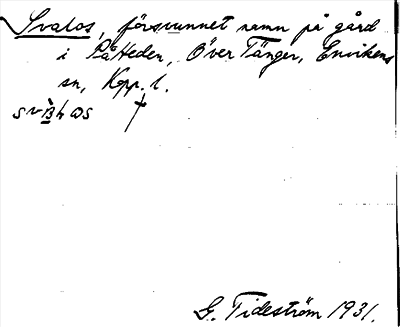 Svalos, försvunnet namn på gård
i På Heden, Över Tänger, Envikens
sn, Kpp. l.
†
G. Tideström 1931.